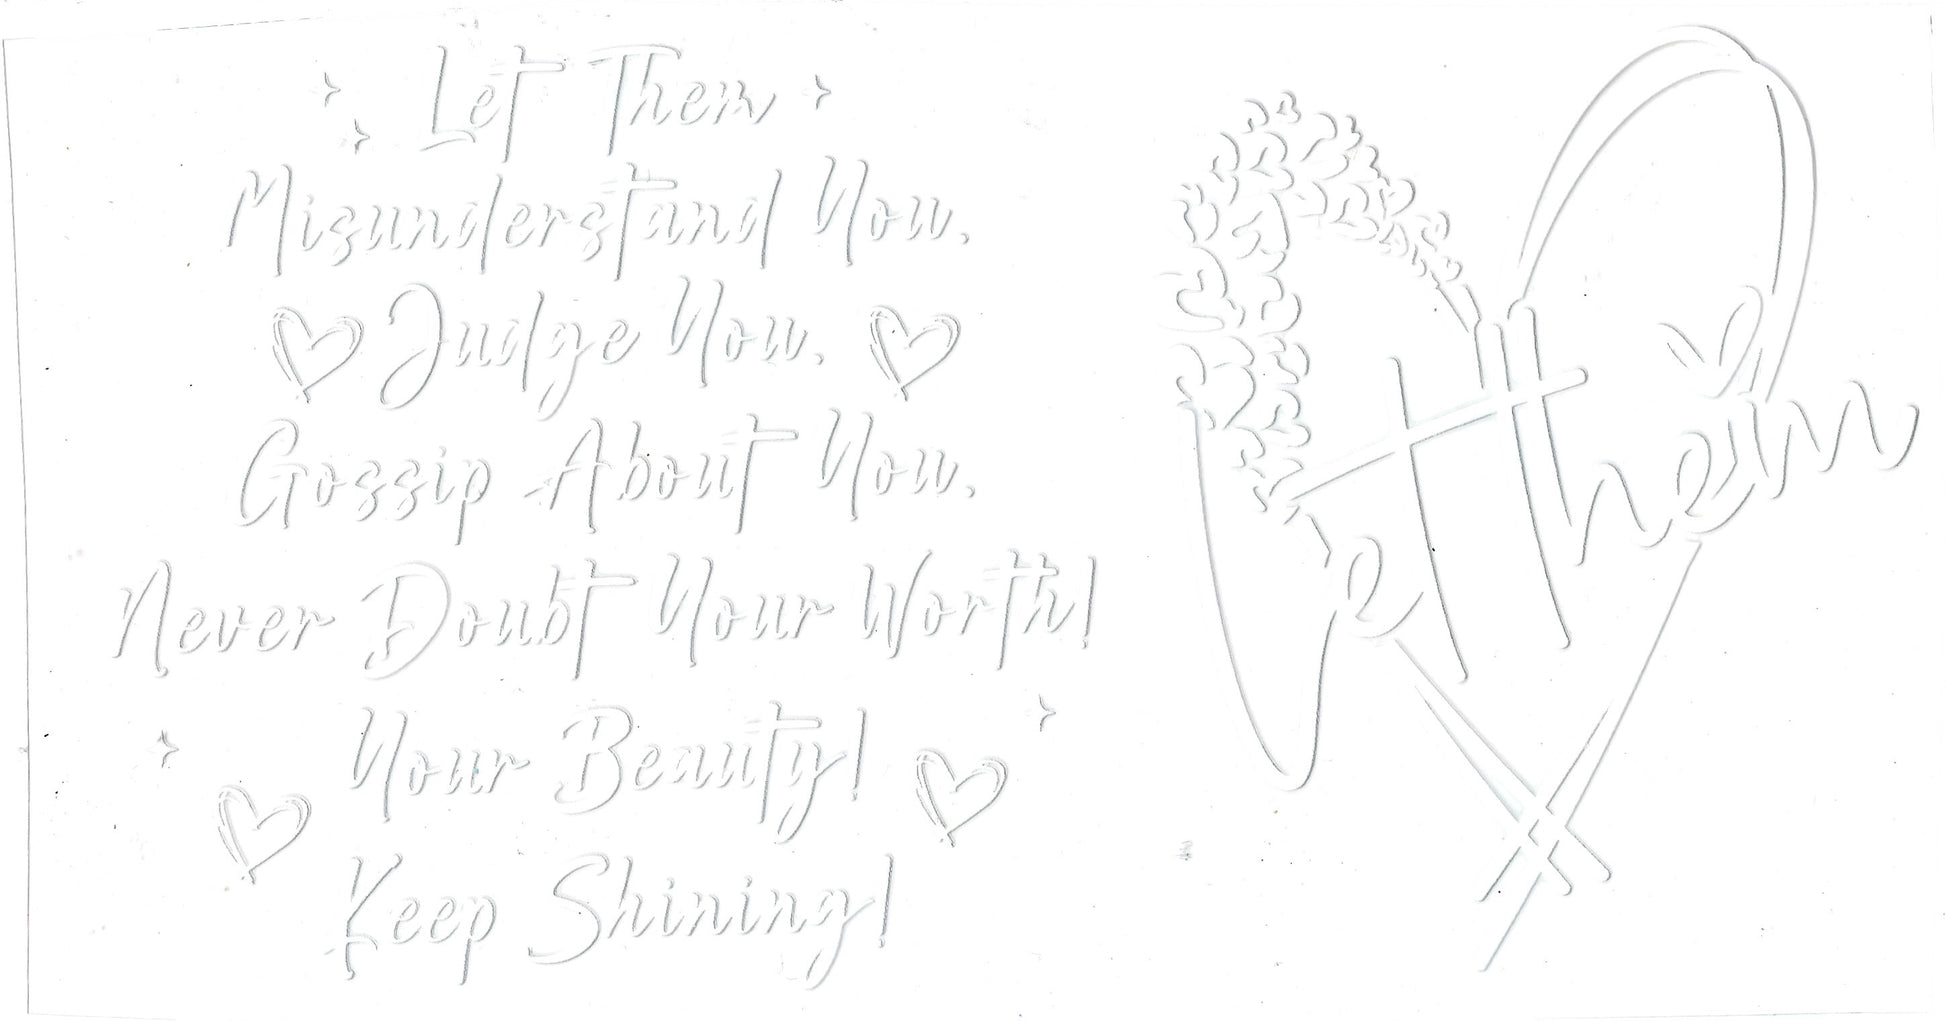 Let Them
Misunderstand You.
Judge You.
Gossip About You.
Never Doubt Your Worth!
Your Beauty!
Keep Shining!
Let them